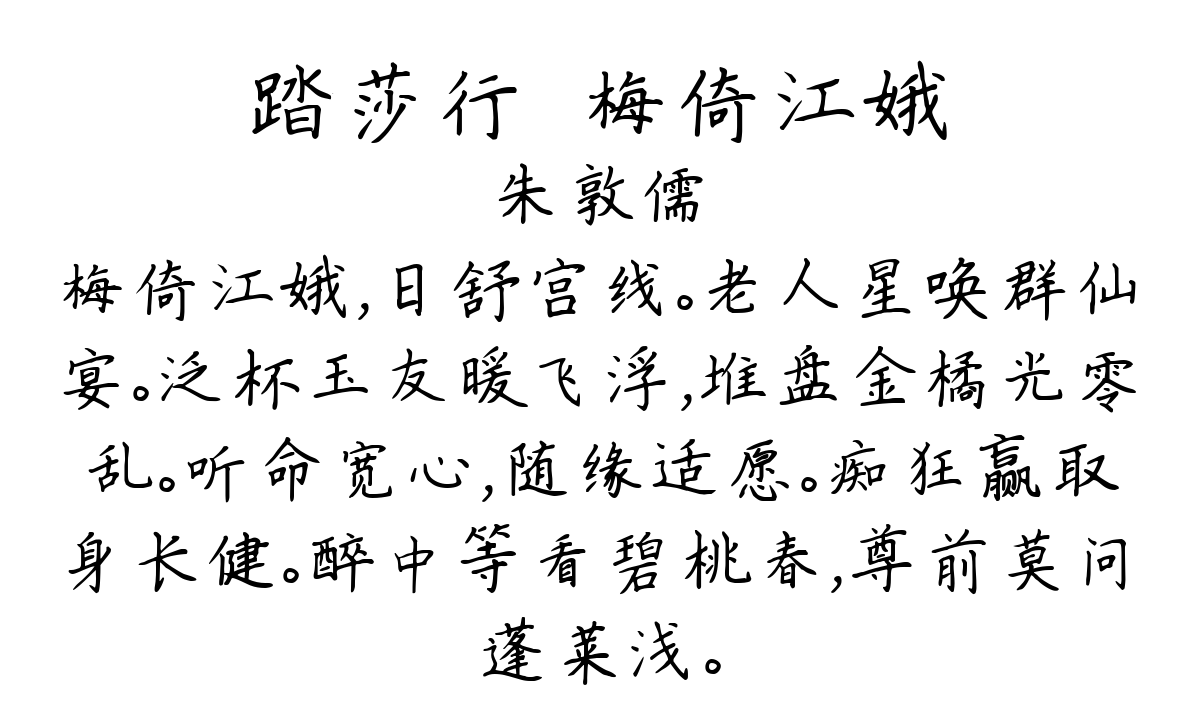 踏莎行 梅倚江娥
朱敦儒
梅倚江娥,日舒宫线。老人星唤群仙
宴。泛杯玉友暖飞浮,堆盘金橘光零
乱。听命宽心,随缘适愿。痴狂赢取
身长健。醉中等看碧桃春,尊前莫问
蓬莱浅。